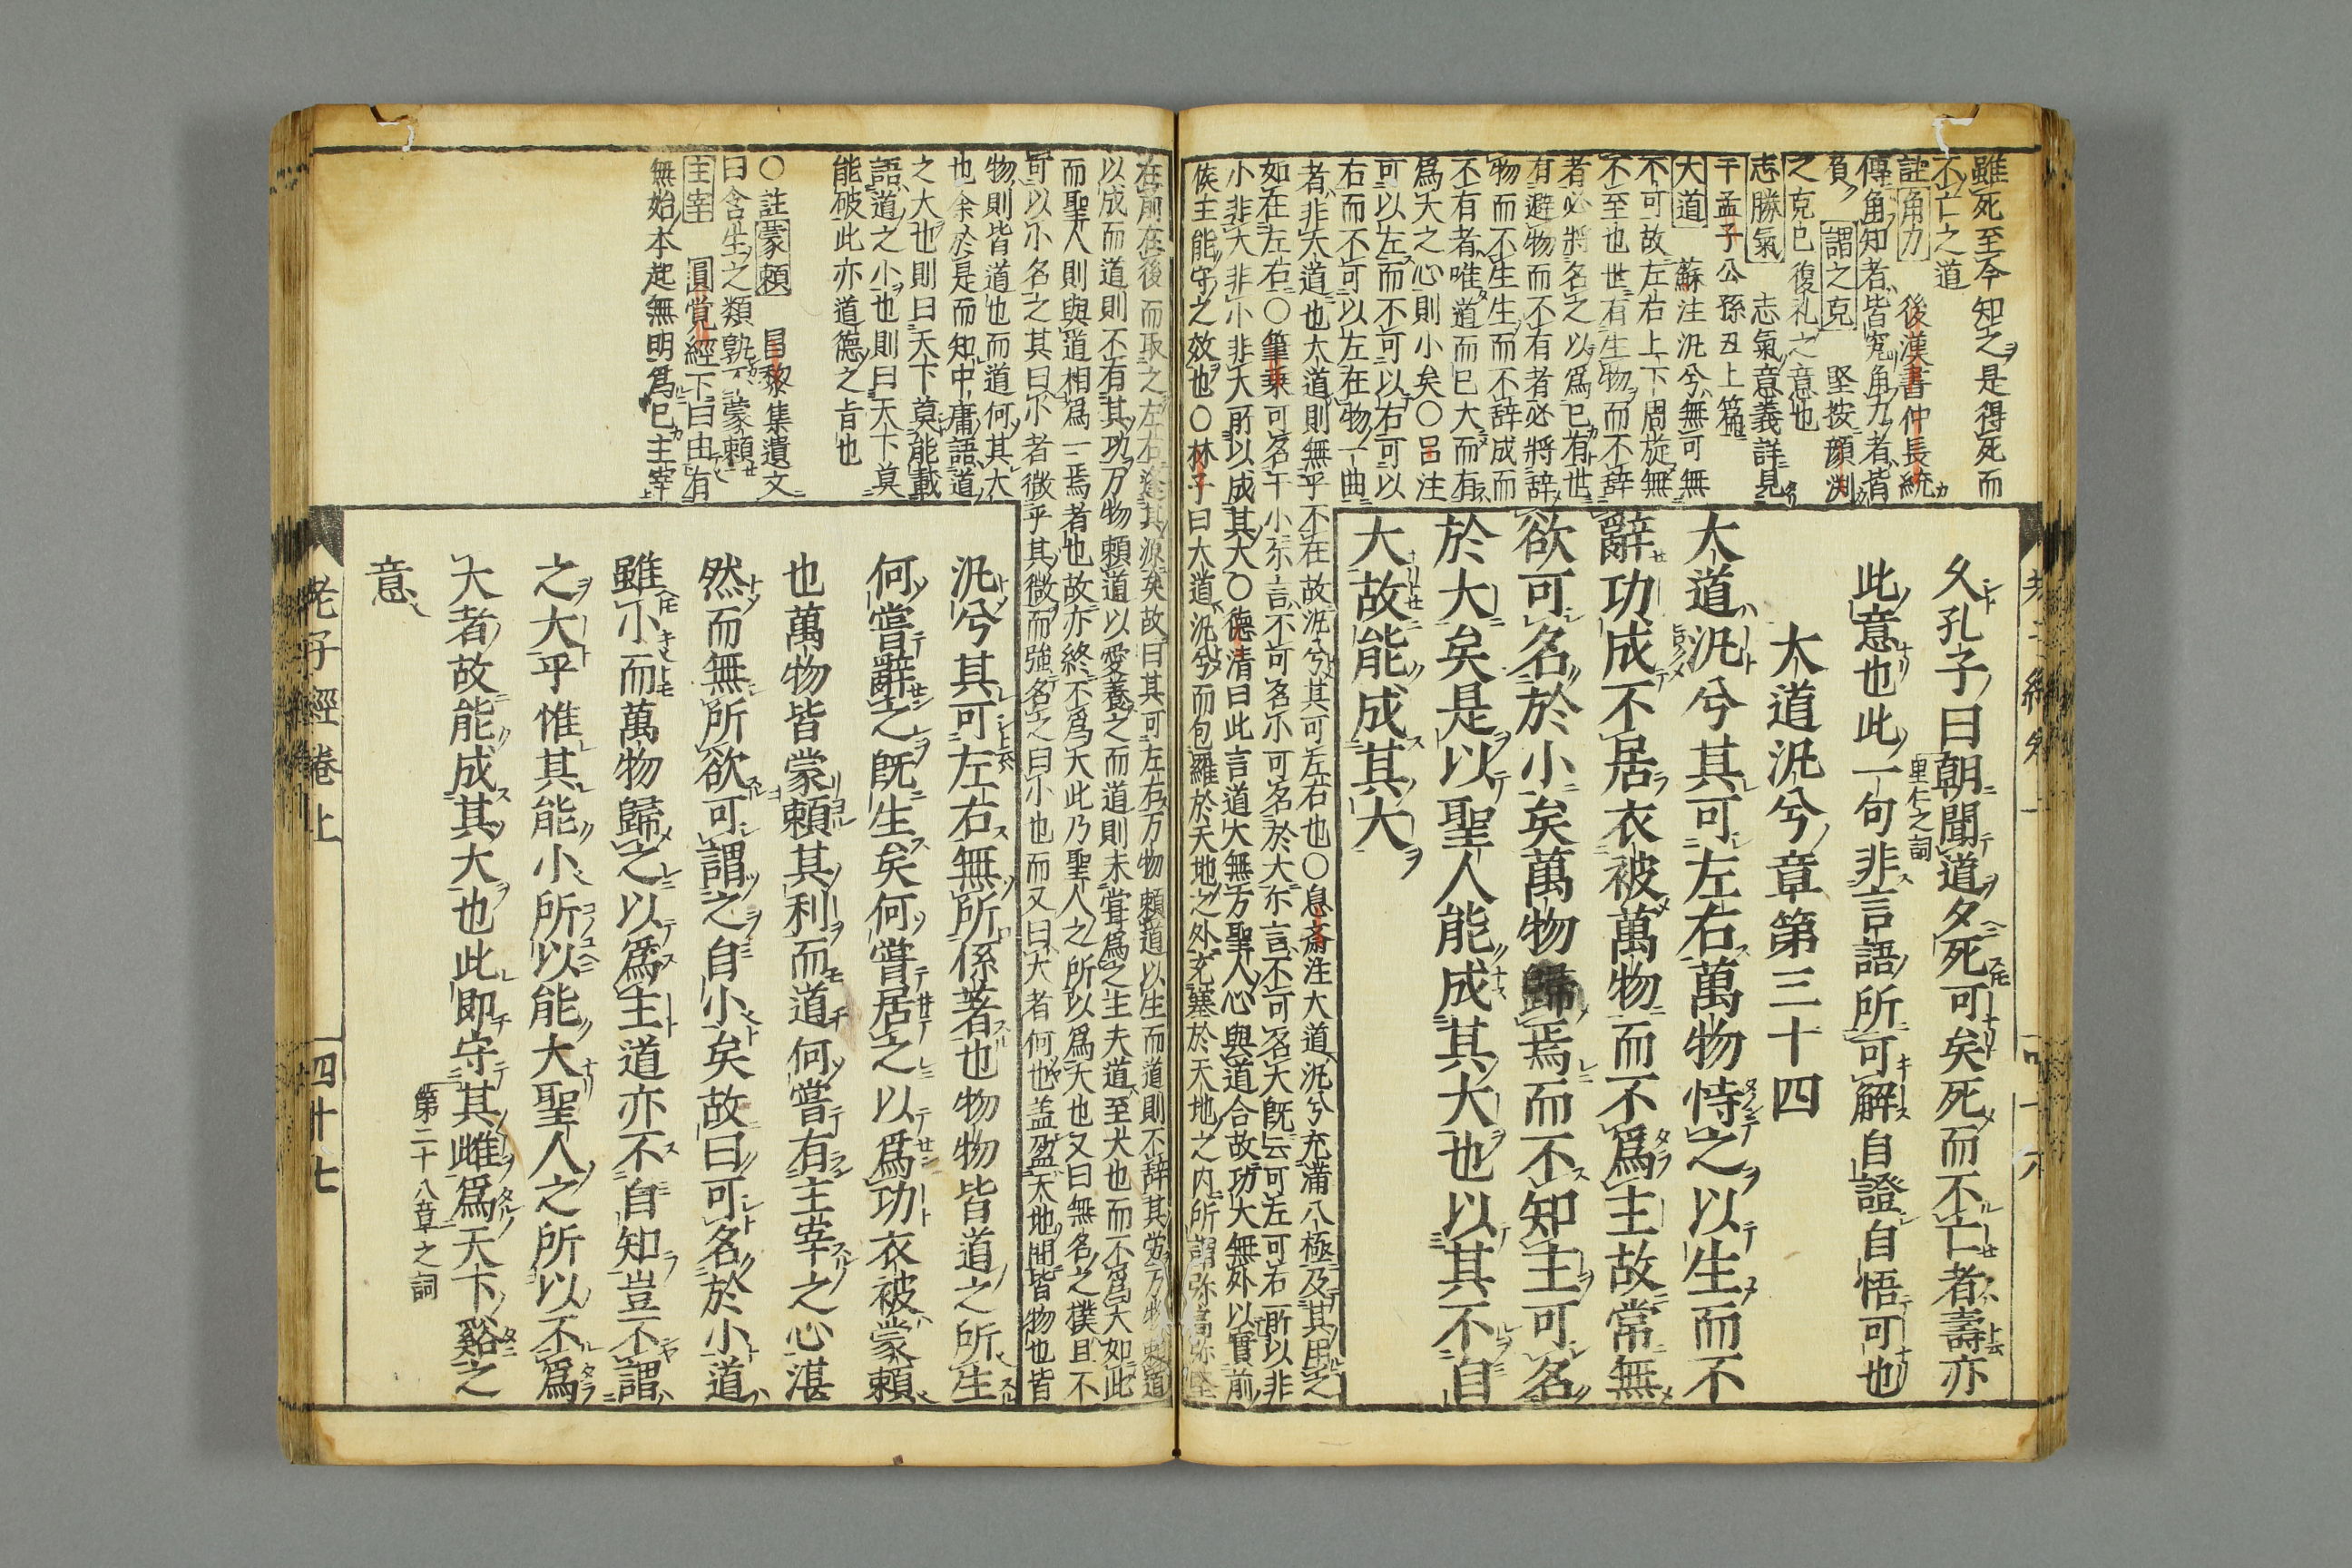 雖死至今知之是得死而
不亡之道
註角力 後漢書仲長統
傳角知者皆窮角力者皆
負 謂之克 堅按顔渕
之克己復礼之意也
志勝氣 志氣意義詳見
于孟子公孫丑上篇
大道 蘇注汎兮無可無
不可故左右上下周旋無
不至也世有生物而不辞
者必將名之以爲已有世
有避物而不有者必將辞
物而不生生而不辞成而
不有者唯道而已大而有
爲大之心則小矣○呂注
可以左而不可以右可以
右而不可以左在物一曲
者非大道也大道則無乎不在故汎兮其可左右也○息斎注大道汎兮充滿八極及其用之
如在左右○筆乗可名于小不言不可名小可名於大不言不可名大既云可左可右所以非
小非大非小非大所以成其大○德清曰此言道大無方聖人心與道合故功大無外以實前
侯王能守之效也○林子曰大道汎兮而包羅於天地之外充塞於天地之内所謂弥高弥堅
久孔子曰朝聞道夕死可矣死而不亡者壽亦
里仁之詞
此意也此一句非言語所可解自證自悟可也
大道汎兮章第三十四
大道汎兮其可左右萬物恃之以生而不
辭功成不居衣被萬物而不爲主故常無
欲可名於小矣萬物歸焉而不知主可名
於大矣是以聖人能成其大也以其不自
大故能成其大
在前在後而取之左右逢其源矣故曰其可左右万物頼道以生而道則不辞其労万物頼道
以成而道則不有其功万物頼道以愛養之而道則未嘗爲之主夫道至大也而不爲大如此
而聖人則與道相爲一焉者也故亦終不爲大此乃聖人之所以爲大也又曰無名之樸且不
可以小名之其曰小者微乎其微而強名之曰小也而又曰大者何也盖盈天地間皆物也皆
物則皆道也而道何其大
也余於是而知中庸語道
之大也則曰天下莫能載
語道之小也則曰天下莫
能破此亦道德之旨也
○註蒙頼 昌黎集遺文
曰含生之類孰不蒙頼
主宰 圓覚經下曰由有
無始本起無明爲己主宰
汎兮其可左右無所係著也物物皆道之所生
何嘗辭之既生矣何嘗居之以爲功衣被蒙頼
也萬物皆蒙頼其利而道何嘗有主宰之心湛
然而無所欲可謂之自小矣故曰可名於小道
雖小而萬物歸之以爲主道亦不自知豈不謂
之大乎惟其能小所以能大聖人之所以不爲
大者故能成其大也此即守其雌爲天下谿之
第二十八章之詞
意
老子經卷上
四十七